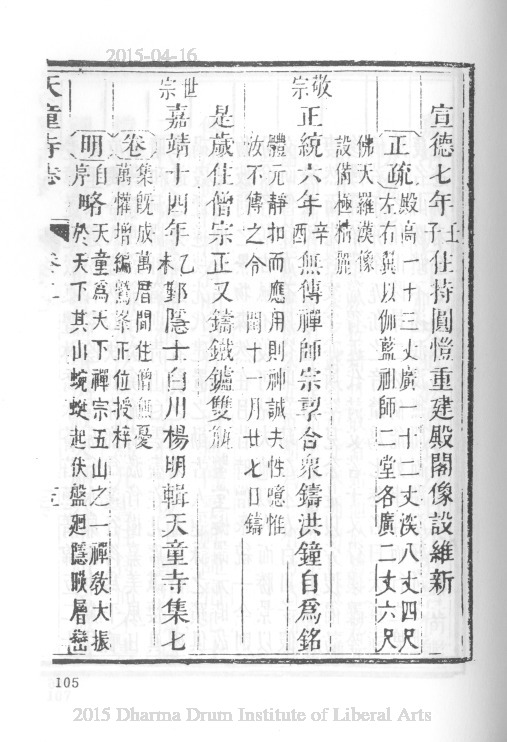 2015-04-16
宣德七年壬子住持圓愷重建殿閣像設維新
正疏殿高一十三丈廣一十二丈深八丈四尺
左右翼以伽藍祖師二堂各廣二丈六尺
佛天羅漢像
設備極精麗
英宗正統六年辛酉無傳禪師宗契合衆鑄洪鐘自爲銘
體元靜扣而應用則神誠夫性噫惟
汝不傳之令 閏十一月廿七日鑄
是歲住僧宗正又鑄鐵鑪雙瓶
世宗嘉靖十四年乙未鄞隱士白川楊明輯天童寺集七
卷集既成萬曆間住僧
萬懽增編鷲峯正位授梓
明自序略天童爲天下禪宗五山之一禪教大振
於天下其山蜿蜒起伏盤廻隱賑層巒
天童寺志
卷二
105
2015 Dharma Drum Institute of Liberal Arts